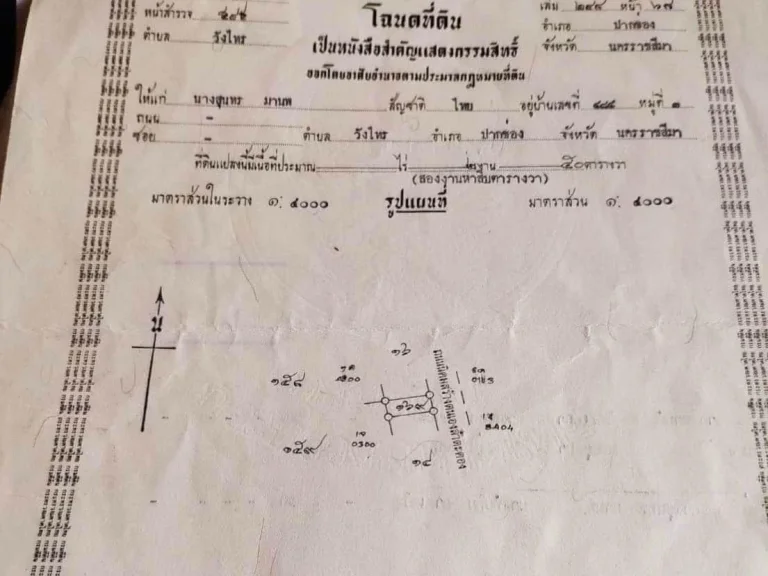 หน้าสำรวจ ๔๙๕ โฉนดที่ดิน เล่ม ๒๙๙ หน้า ๖๗
ตำบล วังไทร เป็นหนังสือสำคัญแสดงกรรมสิทธิ์ อำเภอ ปากช่อง
จังหวัด นครราชสีมา
ออกโดยอาศัยอำนาจตามประมวลกฎหมายที่ดิน
ให้แก่ นางสุนทร มานพ สัญชาติ ไทย อยู่บ้านเลขที่ ๔๘๘ หมู่ที่ ๑
ถนน –
ซอย – ตำบล วังไทร อำเภอ ปากช่อง จังหวัด นครราชสีมา
ที่ดินแปลงนี้มีเนื้อที่ประมาณ ไร่ ๒งาน ๕๐ตารางวา
(สองงานห้าสิบตารางวา)
มาตราส่วนในระวาง ๑: ๔๐๐๐ รูปแผนที่ มาตราส่วน ๑: ๔๐๐๐
น
๑๖
๑๕๘
๑๖๙
ถนนนิคมสร้างตนเองลำตะคอง
๑๕๙
๑๔